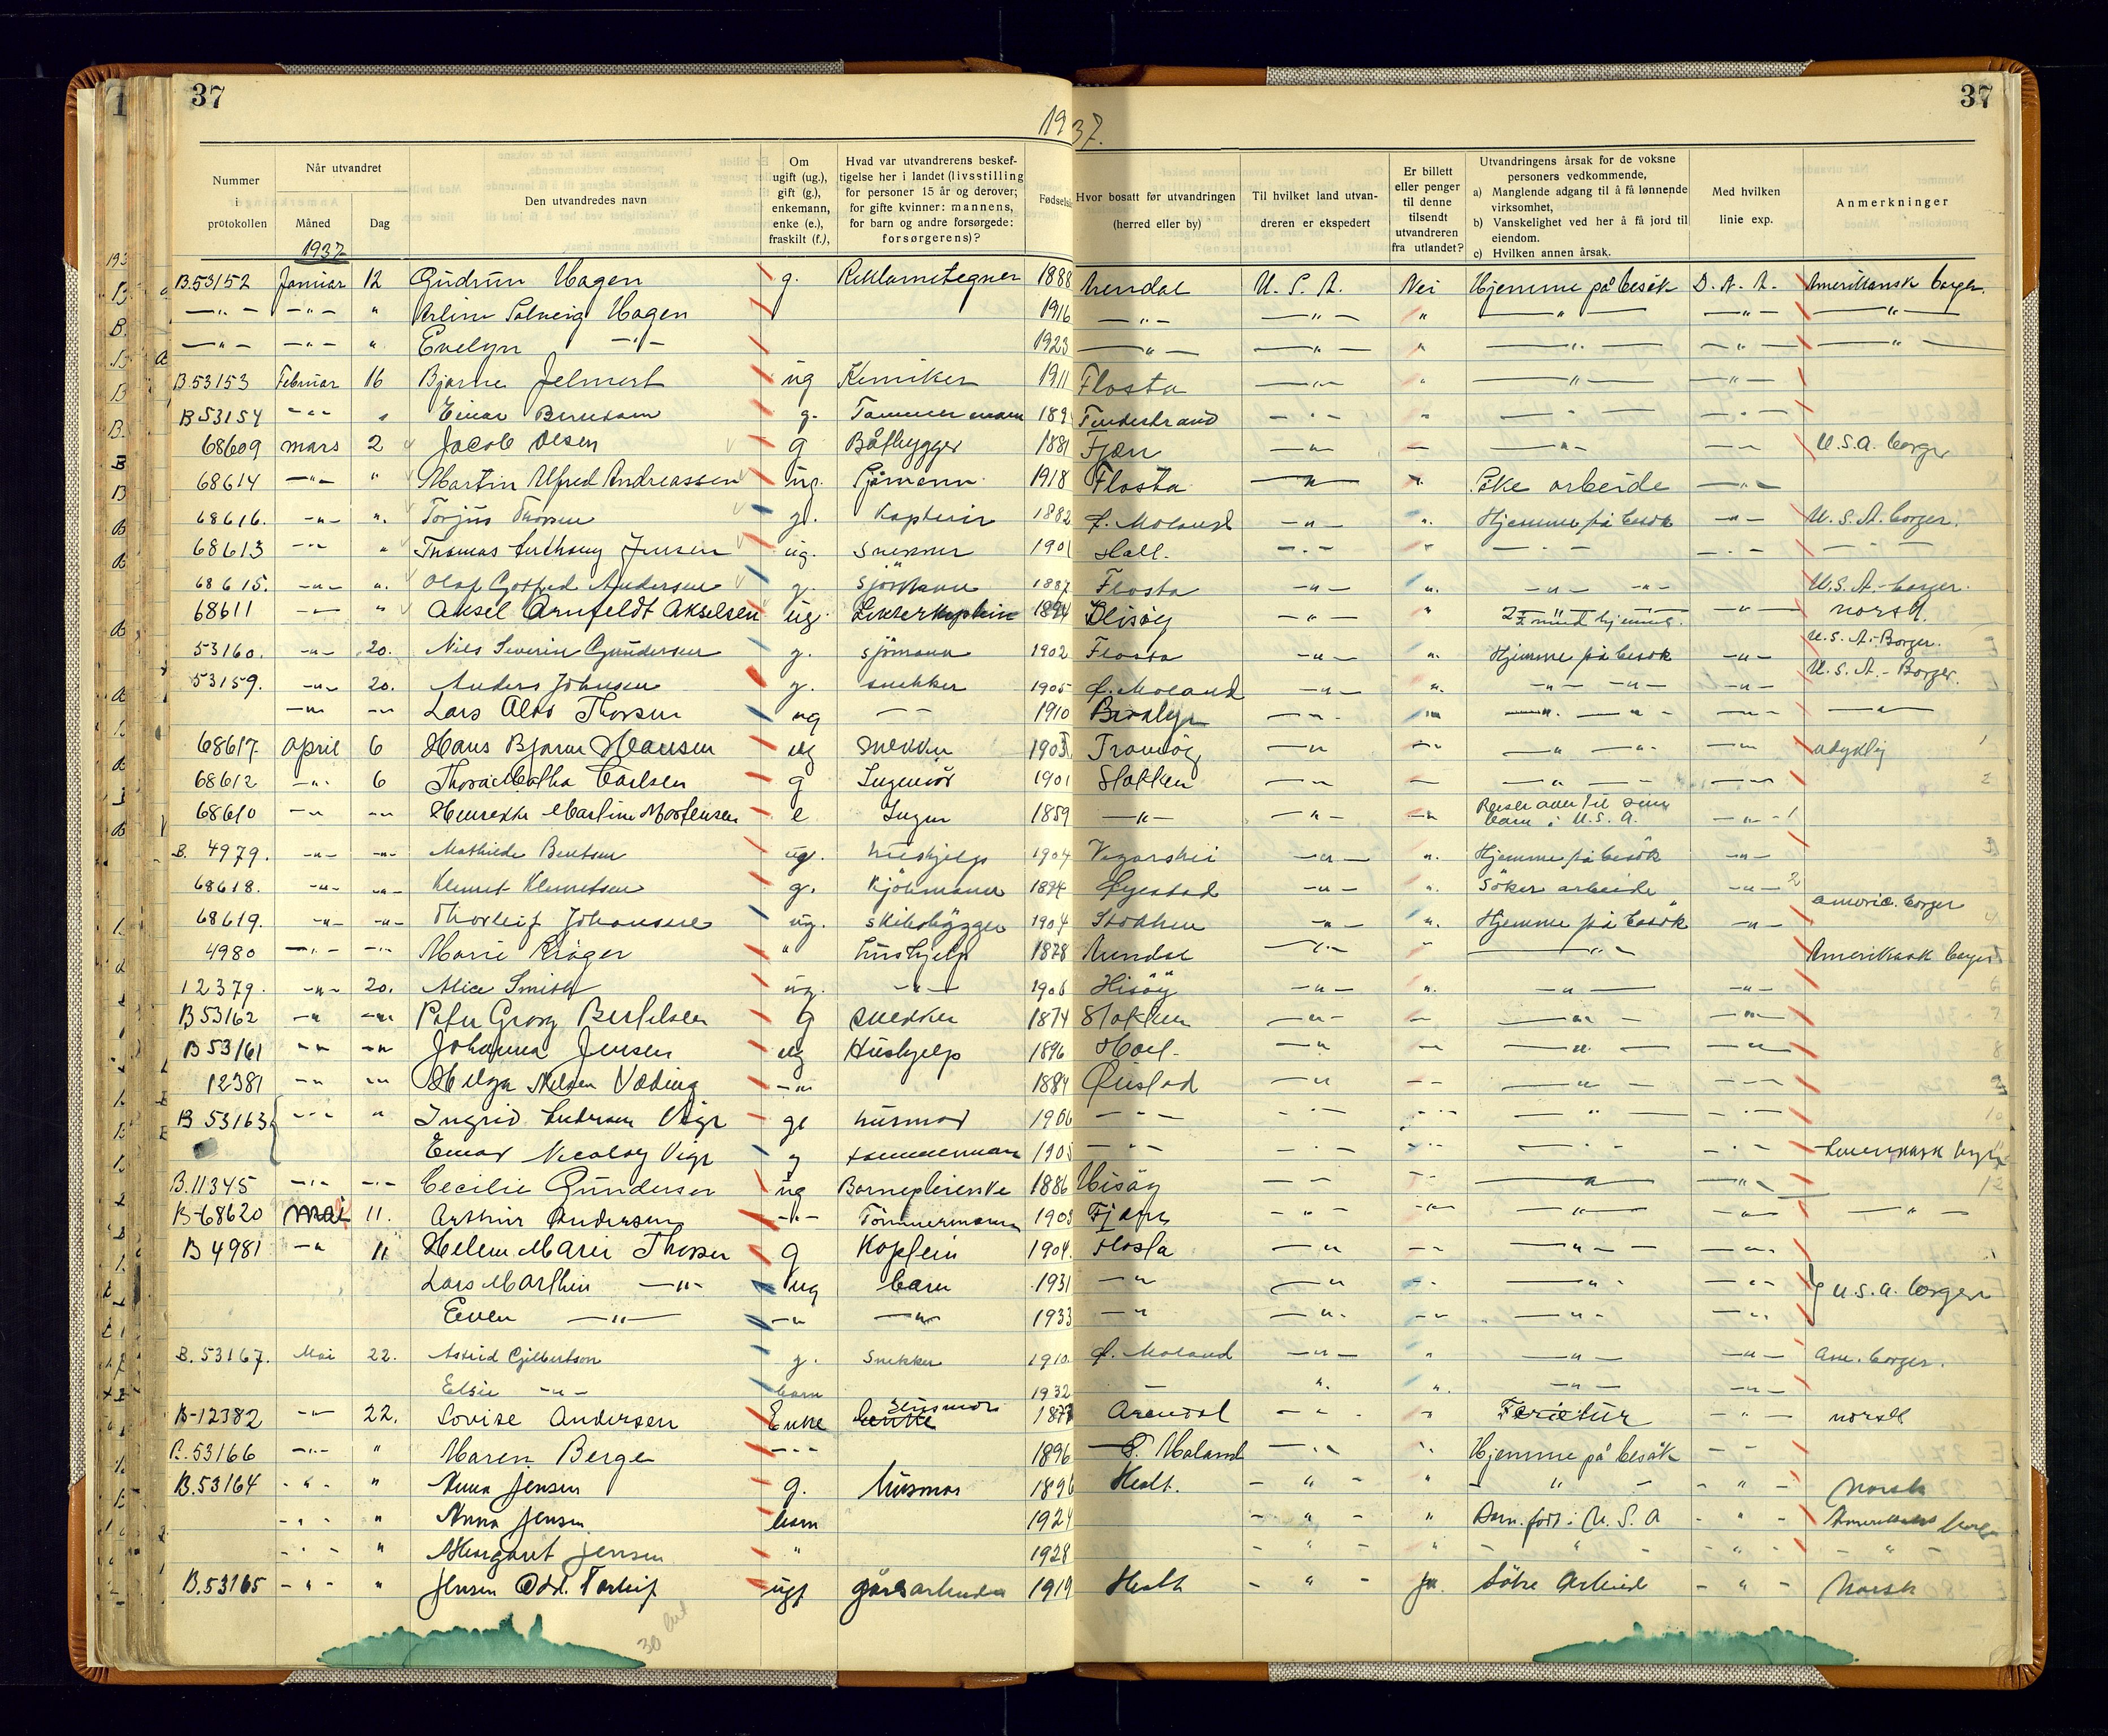 37
37
1937.
Nummer i protokollen
Når utvandret
Måned
Dag
Den utvandredes navn
Om ugift (ug.), gift (g.), enkemann, enke (e.), fraskilt (f.),
Hvad var utvandrerens beskeftigelse her i landet (livsstilling for personer 15 år og derover; for gifte kvinner: mannens, for barn og andre forsørgede: forsørgerens)?
Hvor bosatt før utvandringen (herred eller by)
Til hvilket land utvandreren er ekspedert
Er billett eller penger til denne tilsendt utvandreren fra utlandet?
Utvandringens årsak for de voksne personers vedkommende,
a) Manglende adgang til å få lønnende virksomhet,
b) Vanskelighet ved her å få jord til eiendom.
c) Hvilken annen årsak.
Med hvilken linie exp.
Anmerkninger
1937
B.53152 Januar 12 Gudrun Hagen g. Reklametegner 1888 Arendal U.S.A. Nei Hjemme på besøk D.A.A. Amerikansk borger.
—"— —"— " Arline Solveig Hagen 1916 —"— —"— " —"— —"— —"—
—"— —"— " Evelyn —"— 1923 —"— —"— " —"— —"— —"—
B.53153 Februar 16 Bjarne Jelmert ug Kemiker 1911 Flosta —"— " —"— —"—
B 53154 —"— " Einar Berntsen g. Tømmermann 189 —"— " —"— —"—
68609 mars 2 Jacob Olsen g Båtbygger 1881 Fjære —"— — —"— —"— U.S.A. borger
68614 —"— " Martin Alfred Andreassen ug. Sjømann 1918 Flosta —"— " Søke arbeide —"—
68616. —"— ". Torjus Thorsen g. Kaptein 1882 Ø. Moland —"— ". Hjemme på besøk —"— U.S.A. borger.
68613 —"— " Thomas Anthony Jensen ug. snekker 1901 Holt. —"— " —"— —"— —"—
68615. —"— ". Olaf Gotfred Andersen g. sjømann 1887 Flosta —"— ". —"— —"— —"— U.S.A.-borger.
68611 —"— " Aksel Arnfeldt Akselsen ug. 1894 —"— " —"— norsk.
53160. —"— 20. Nils Severin Gundersen g. sjømann 1902 Flosta —"— ". Hjemme på besøk —"— U.S.A.-Borger.
53159. —"— 20. Anders Johnsen g. snekker 1905 Ø. Moland —"— ". —"— —"— —"— U.S.A.-Borger.
—"— —"— Lars Thorsen ug —"— 1910 —"— " —"— —"— —"— —"—
68617 April 6 Hans Bjarne Hansen ug snekker 1903 Tromøy —"— —"— —"— —"— —"—
68612 —"— 6 Thora Carlsen g Ingeniør 1901 Stokken —"— — —"— —"—
68610 —"— —"— Henrikke Martine Mortensen e Ingen 1859 —"— —"— —"— Reiser over til sine barn i U.S.A. —"—
B. 4979. —"— —"— Mathilde Bentsen ug. hushjelp 1904 Vegårshei —"— ". Hjemme på besøk —"—
68618. —"— —"— Klemet Klemetsen g. kjøkmann 1894 Øyestad —"— ". Søker arbeide —"—
68619. —"— —"— Thorleif Johansen ug. skibsbygger 1904 Stokken —"— ". Hjemme på besøk —"— americ. borger
4980 —"— —"— Marie Krøger " hushjelp 1878 Arendal —"— " —"— Amerikansk borger
12379. —"— 20. Alice Smith ug. —"— 1906 Hisøy —"— ". —"— —"—
B 53162 —"— —"— Peter Georg Bertelsen g snekker 1874 Stokken —"— — —"— —"—
B 53161 —"— —"— Johanna Jensen ug Hushjelp 1896 Holt. —"— —"— —"— —"—
12381 —"— —"— Helga Nilsen Væding —"— 1884 Øiestad —"— —"— —"— —"—
B 53163 —"— " Ingrid Andersen Vige gt husmor 1906 —"— —"— —"— —"— —"—
Einar Nicolay Vige g tømmermann 1905 —"— —"— —"— —"— —"— Amerikansk borger
B.11345 —"— —"— Cecilie Gundersen ug Barnepleierske 1886 Hisøy —"— —"— —"— —"—
B-68620 Mai 11. Arthur Andersen —"— Tømmermann 1908 Fjære —"— —"— —"— —"— —"—
B 4981 —"— 11 Helene Marie Thorsen g Kaptein 1904. Flosta —"— —"— —"— —"—
Lars Marthin —"— ug barn 1931 —"— —"— —"— —"— —"— U.S.A. borger
Even —"— —"— —"— 1933 —"— —"— —"— —"— —"—
B. 53167. Mai 22. Astrid Gjilbertson g. Snekker 1910. Ø. Moland —"— " —"— —"— Am. borger.
Elsie —"— barn 1932 — ". ". —"— —"—
B-12382 —"— 22. Lovise Andersen Enke husmor 1877 Arendal —"— " Ferietur —"— norsk
B.53166 —"— " Maren Berge —"— 1896 Ø. Moland —"— " Hjemme på besøk —"—
B.53164 —"— " Anna Jensen g. husmor 1896 Holt. —"— " —"— —"— Norsk
—"— " Anna Jensen barn 1924 —"— " Barn. født i U.S.A —"— Amerikansk borger
—"— " Margaret Jensen " 1928 —"— " —"— —"— —"—
B.53165 —"— " Jensen Odd. Torleif ugt gårdsarbeider 1919 Holt —"— ja. Søke Arbeid —"— Norsk